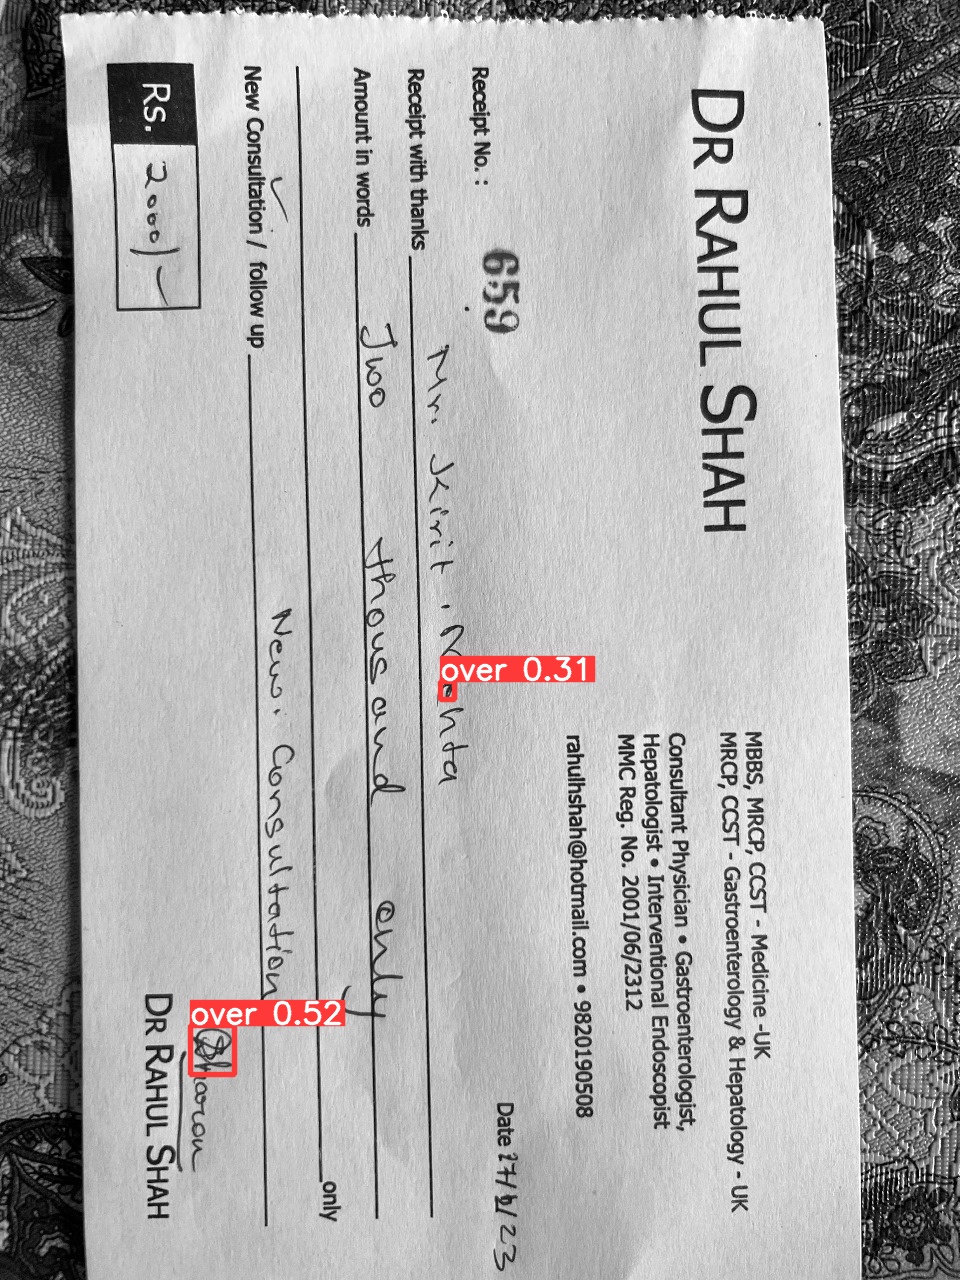 DR RAHUL SHAH
MBBS, MRCP, CCST - Medicine -UK
MRCP, CCST - Gastroenterology & Hepatology - UK
Consultant Physician • Gastroenterologist,
Hepatologist • Interventional Endoscopist
MMC Reg. No. 2001/06/2312
rahulhshah@hotmail.com • 9820190508
Receipt No. : 659
Date
Receipt with thanks Mr. Kirit . 
over 0.31
Amount in words Two thousand only
only
New Consultation / follow up New. Consultation
over 0.52
Sharon
Rs. 2000/-
DR RAHUL SHAH